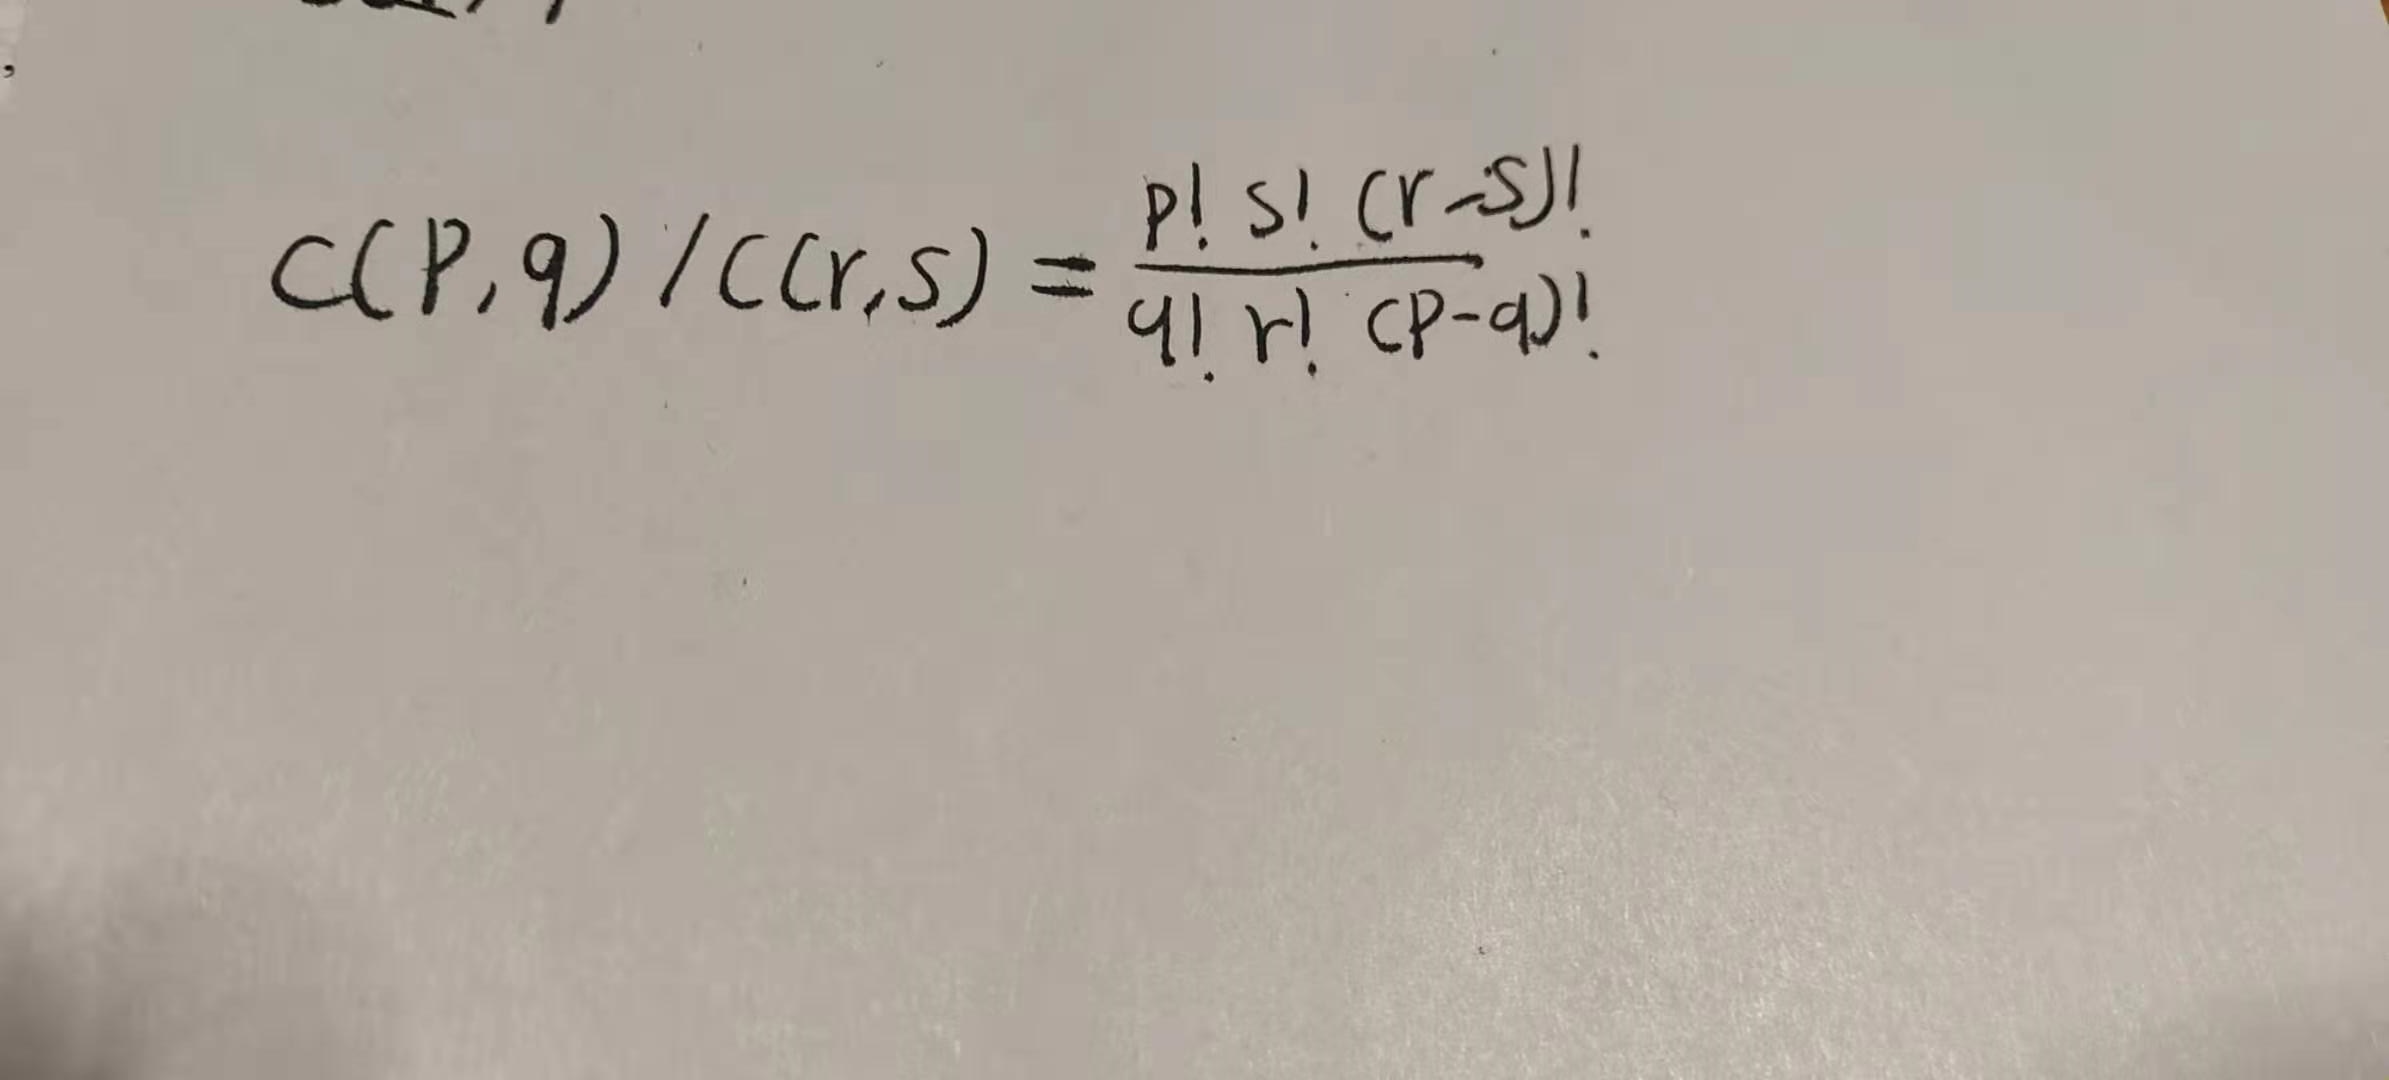 C(P,q)/C(r,s) = \frac{p! s! (r-s)!}{q! r! (p-q)!}